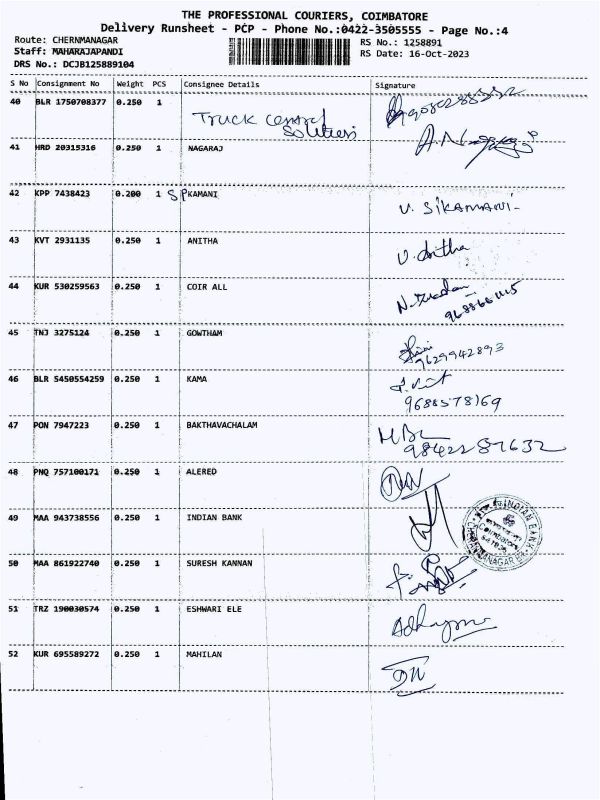 THE PROFESSIONAL COURIERS, COIMBATORE
Delivery Runsheet - PCP - Phone No.:0422-3505555 - Page No.:4
Route: CHERNMANAGAR RS No.: 1258891
Staff: MAHARAJAPANDI RS Date: 16-Oct-2023
DRS No.: DCJB125889104
S No Consignment No Weight PCS Consignee Details Signature
40 BLR 1750708377 0.250 1 Truck central
Solutions
41 HRD 20315316 0.250 1 NAGARAJ
42 KPP 7438423 0.200 1 SP KAMANI V. SIKAMANI-
43 KVT 2931135 0.250 1 ANITHA V. Anitha
44 KUR 530259563 0.250 1 COIR ALL
45 TNJ 3275124 0.250 1 GOWTHAM
9629942893
46 BLR 5450554259 0.250 1 KAMA
9688578169
47 PON 7947223 0.250 1 BAKTHAVACHALAM
9842287632
48 PNQ 757100171 0.250 1 ALERED
49 MAA 943738556 0.250 1 INDIAN BANK INDIAN BANK
50 MAA 861922740 0.250 1 SURESH KANNAN
51 TRZ 190030574 0.250 1 ESHWARI ELE
52 KUR 695589272 0.250 1 MAHILAN